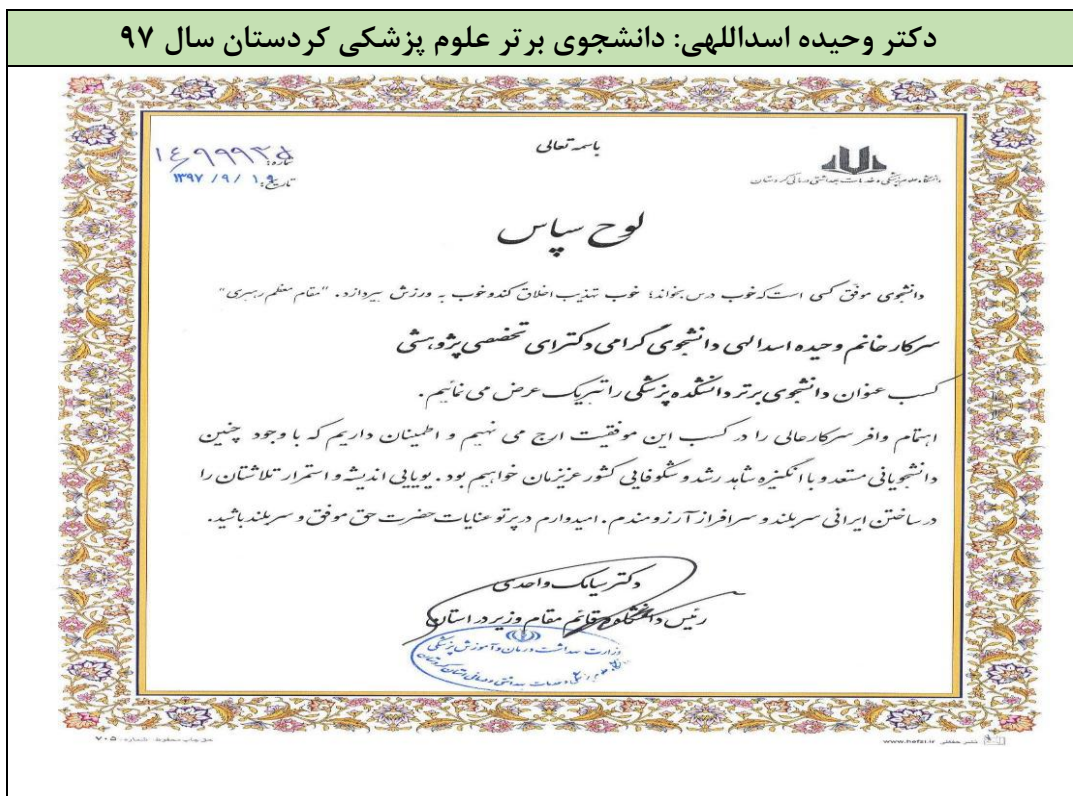 دکتر وحیده اسداللهی: دانشجوی برتر علوم پزشکی کردستان سال ۹۷
باسمه تعالی
دانشگاه علوم پزشکی و خدمات بهداشتی درمانی کردستان
شماره:
تاریخ: ۱۳۹۷ / ۹ /
لوح سپاس
دانشجوی موفق کسی است که خوب درس بخواند؛ خوب تهذیب اخلاق کند و خوب به ورزش بپردازد. "مقام معظم رهبری"
سرکار خانم وحیده اسدالهی دانشجوی گرامی دکترای تخصصی پژوهشی
کسب عنوان دانشجوی برتر دانشکده پزشکی را تبریک عرض می نمائیم.
اهتمام وافر سرکارعالی را در کسب این موفقیت ارج می نهیم و اطمینان داریم که با وجود چنین
دانشجویانی مستعد و با انگیزه شاهد رشد و شکوفایی کشور عزیزمان خواهیم بود. پویایی اندیشه و استمرار تلاشتان را
در ساختن ایرانی سربلند و سرافراز آرزومندم. امیدوارم در پرتو عنایات حضرت حق موفق و سربلند باشید.
دکتر سیامک واحدی
رئیس دانشگاه و قائم مقام وزیر در استان
وزارت بهداشت درمان و آموزش پزشکی
حق چاپ محفوظ - شماره: ۷۰۵
نشر حفظی www.hefzi.ir